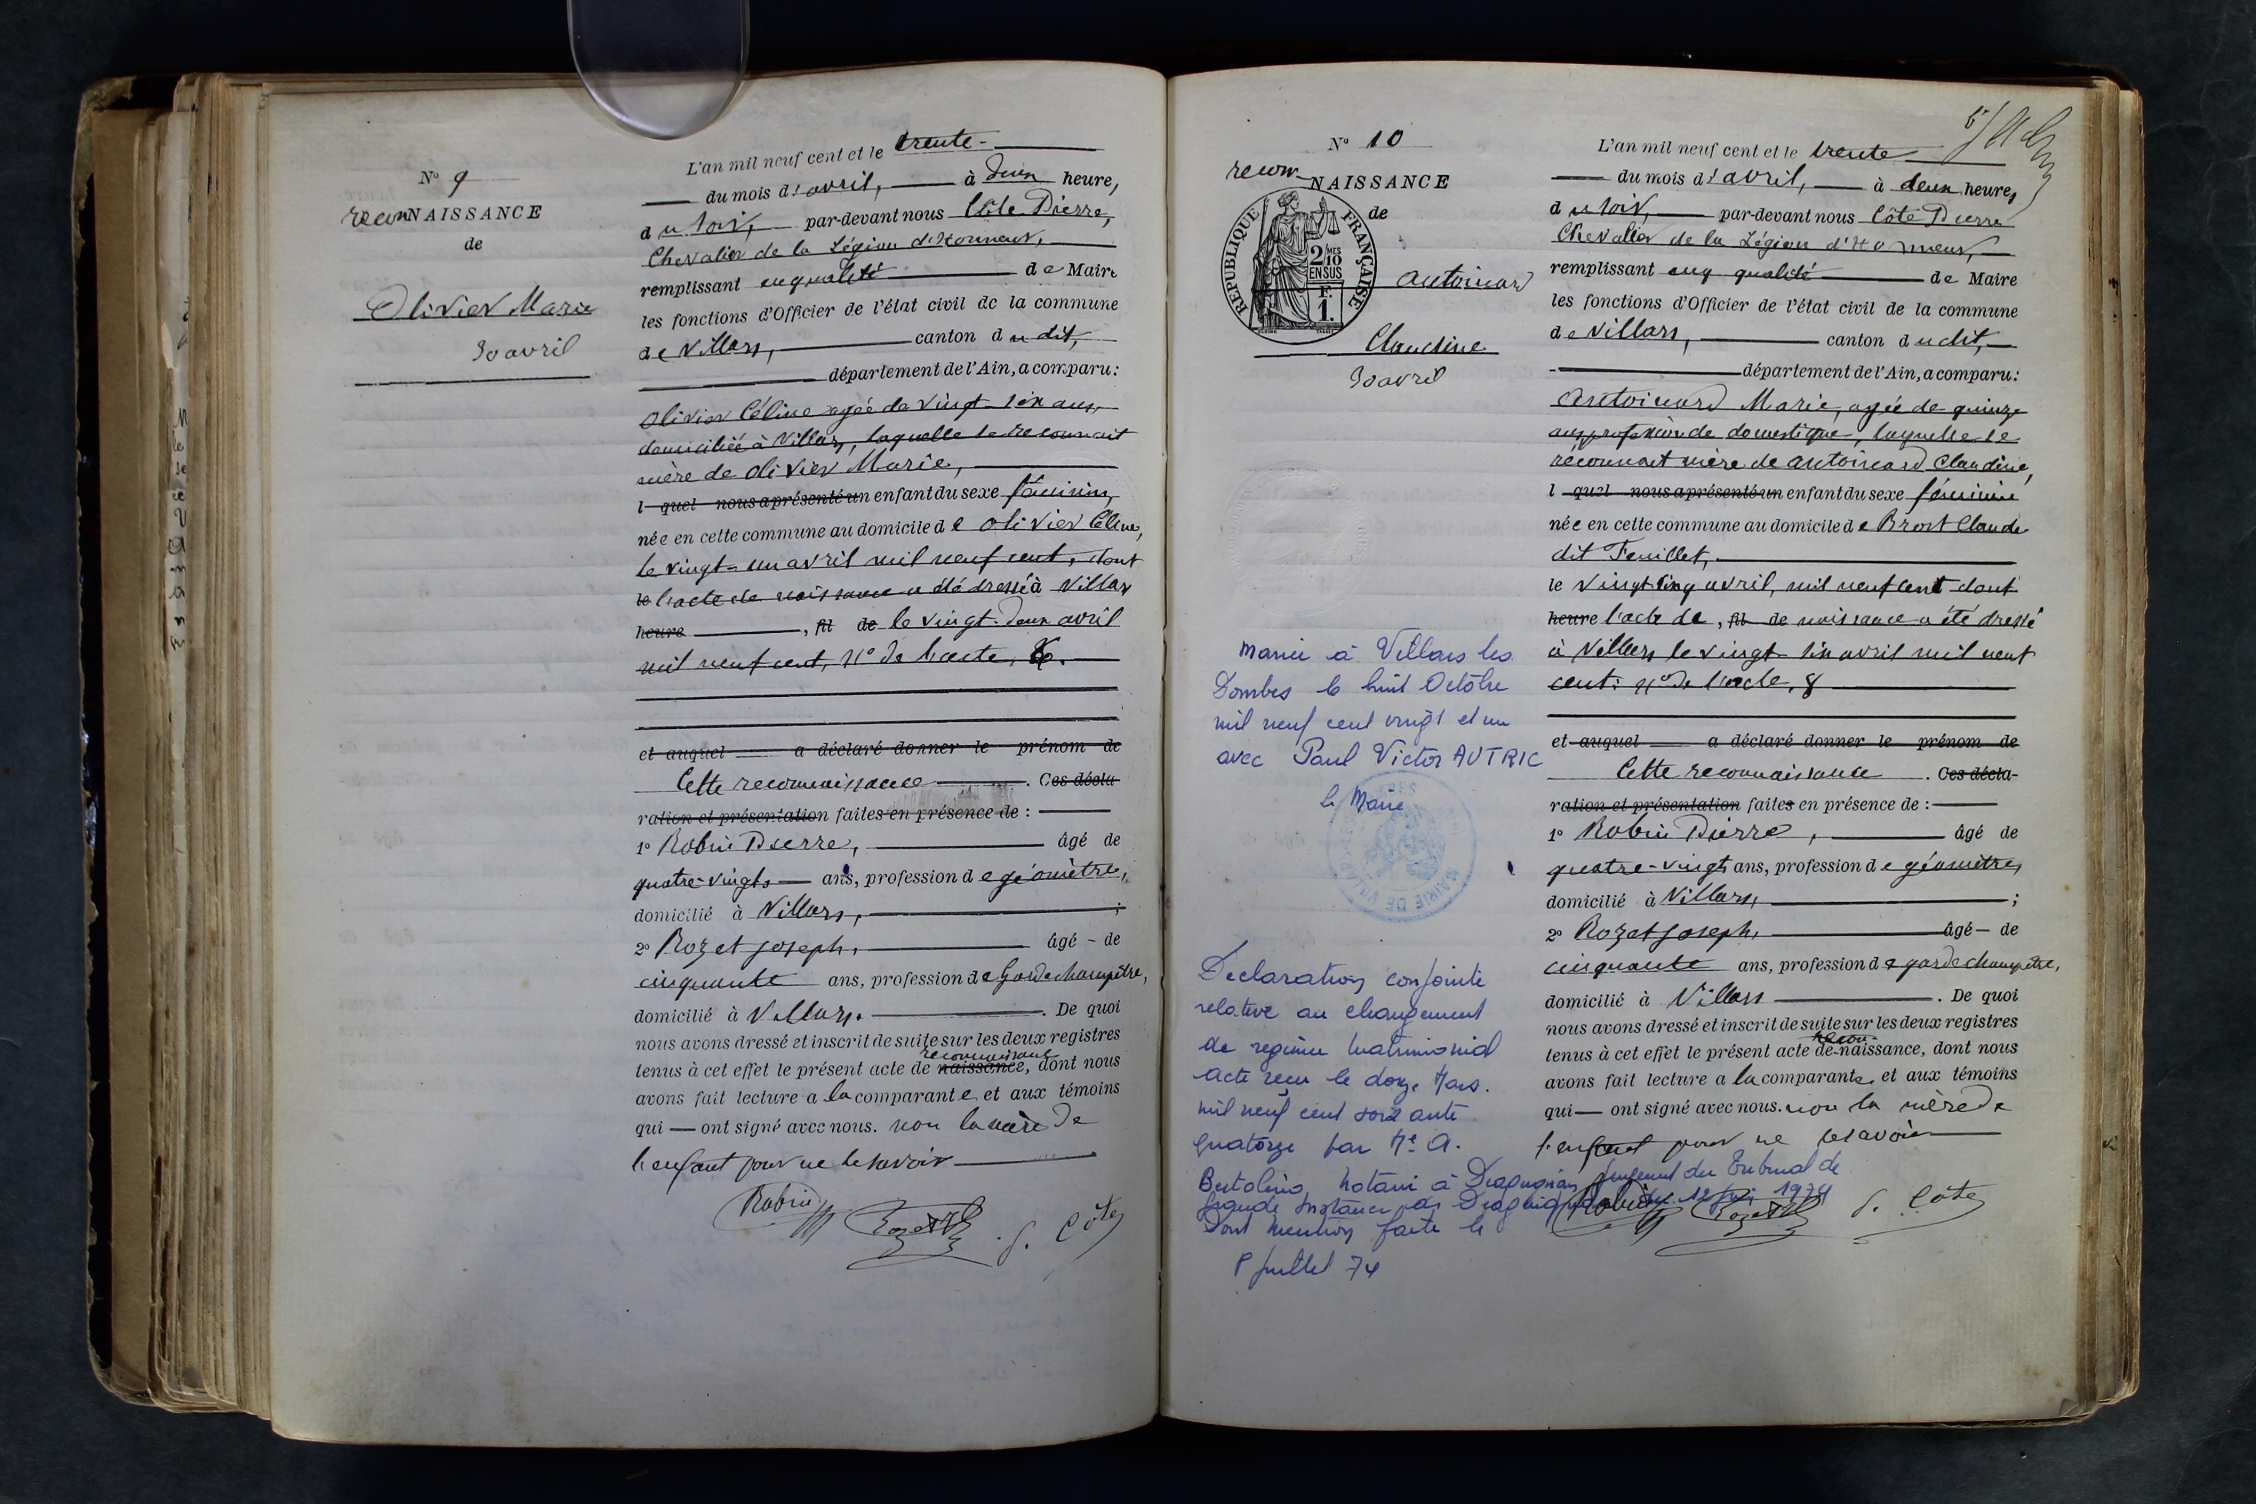 N° 9
reconNAISSANCE
de
Olivier Marie
30 avril
L'an mil neuf cent et le trente
du mois d'avril, à deux heure,
du soir, par-devant nous Côte Pierre,
Chevalier de la Légion d'Honneur,
remplissant en qualité de Maire
les fonctions d'Officier de l'état civil de la commune
de Villars, canton du dit,
département de l'Ain, a comparu:
Olivier Céline agée de vingt-six ans,
domiciliée à Villars, laquelle se reconnait
mère de Olivier Marie,
l quel nous a présenté un enfant du sexe féminin,
née en cette commune au domicile de Olivier Céline,
le vingt-un avril mil neuf cent, dont
le l'acte de naissance a été dressé à Villars
heure , fil de le vingt-deux avril
mil neuf cent, N° de l'acte,
et auquel a déclaré donner le prénom de
Cette reconnaissance . Ces décla-
ration et présentation faites en présence de :
1° Robin Pierre, âgé de
quatre-vingts ans, profession de géomètre,
domicilié à Villars, ;
2° Rozet Joseph, âgé de
cinquante ans, profession de Garde champêtre,
domicilié à Villars. . De quoi
nous avons dressé et inscrit de suite sur les deux registres
reconnaissance
tenus à cet effet le présent acte de naissance, dont nous
avons fait lecture a la comparante et aux témoins
qui — ont signé avec nous. non la mère de
l'enfant pour ne le savoir
Robin Rozet J. Côte
N° 10
reconNAISSANCE
de
REPUBLIQUE FRANÇAISE
2/10 MES
EN SUS
F.
1.
Antoinard
Claudine
30 avril
L'an mil neuf cent et le trente
du mois d'avril, à deux heures
du soir, par-devant nous Côte Pierre
Chevalier de la Légion d'Honneur,
remplissant en qualité de Maire
les fonctions d'Officier de l'état civil de la commune
de Villars, canton du dit,
département de l'Ain, a comparu:
Antoinard Marie, agée de quinze
ans, profession de domestique, laquelle se
reconnait mère de Antoinard Claudine,
l quel nous a présenté un enfant du sexe féminin
née en cette commune au domicile de Brost Claude
dit Feuillet,
le vingt cinq avril, mil neuf cent dont
heure l'acte de , fil de naissance a été dressé
à Villars le vingt six avril mil neuf
cent: N° de l'acte, 8
et auquel a déclaré donner le prénom de
Cette reconnaissance . Ces décla-
ration et présentation faites en présence de :
1° Robin Pierre, âgé de
quatre-vingts ans, profession de géomètre,
domicilié à Villars, ;
2° Rozet Joseph, âgé de
cinquante ans, profession de garde champêtre,
domicilié à Villars . De quoi
nous avons dressé et inscrit de suite sur les deux registres
recon-
tenus à cet effet le présent acte de naissance, dont nous
avons fait lecture a la comparante et aux témoins
qui — ont signé avec nous. non la mère de
l'enfant pour ne le savoir
Robin Rozet J. Côte
Mariée à Villars les
Dombes le huit Octobre
mil neuf cent vingt et un
avec Paul Victor AUTRIC
le Maire
MAIRIE DE VILLARS
Declaration conjointe
relative au changement
de regime matrimonial
acte reçu le douze Mars
mil neuf cent soixante
quatorze par Me A.
Bertolino notaire à Draguignan jugement du Tribunal de
Grande Instance de Draguignan du 12 juin 1974
Dont mention faite le
8 juillet 74